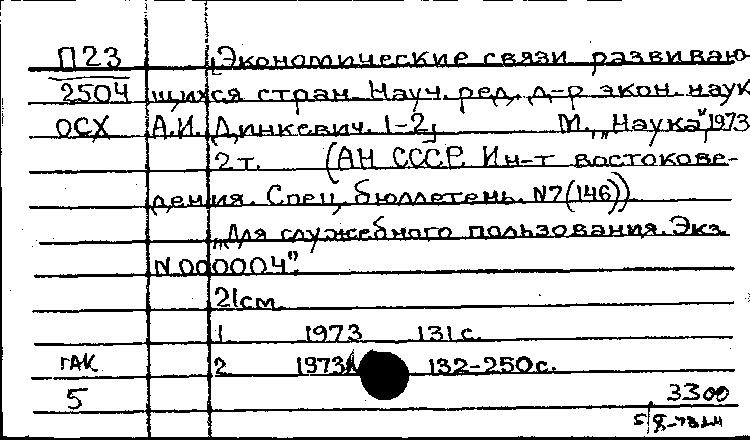 П23 [Экономические связи развиваю-
2504 щихся стран. Науч. ред. д-р экон. наук
ОСХ А.И. Динкевич. 1-2] М., „Наука", 1973
2 т. (АН СССР. Ин-т востокове-
дения. Спец. бюллетень. N7(146))
„Для служебного пользования. Экз.
N 000004".
21см
1 1973 131 с.
ГАК 2 1973 132-250с.
5 3300